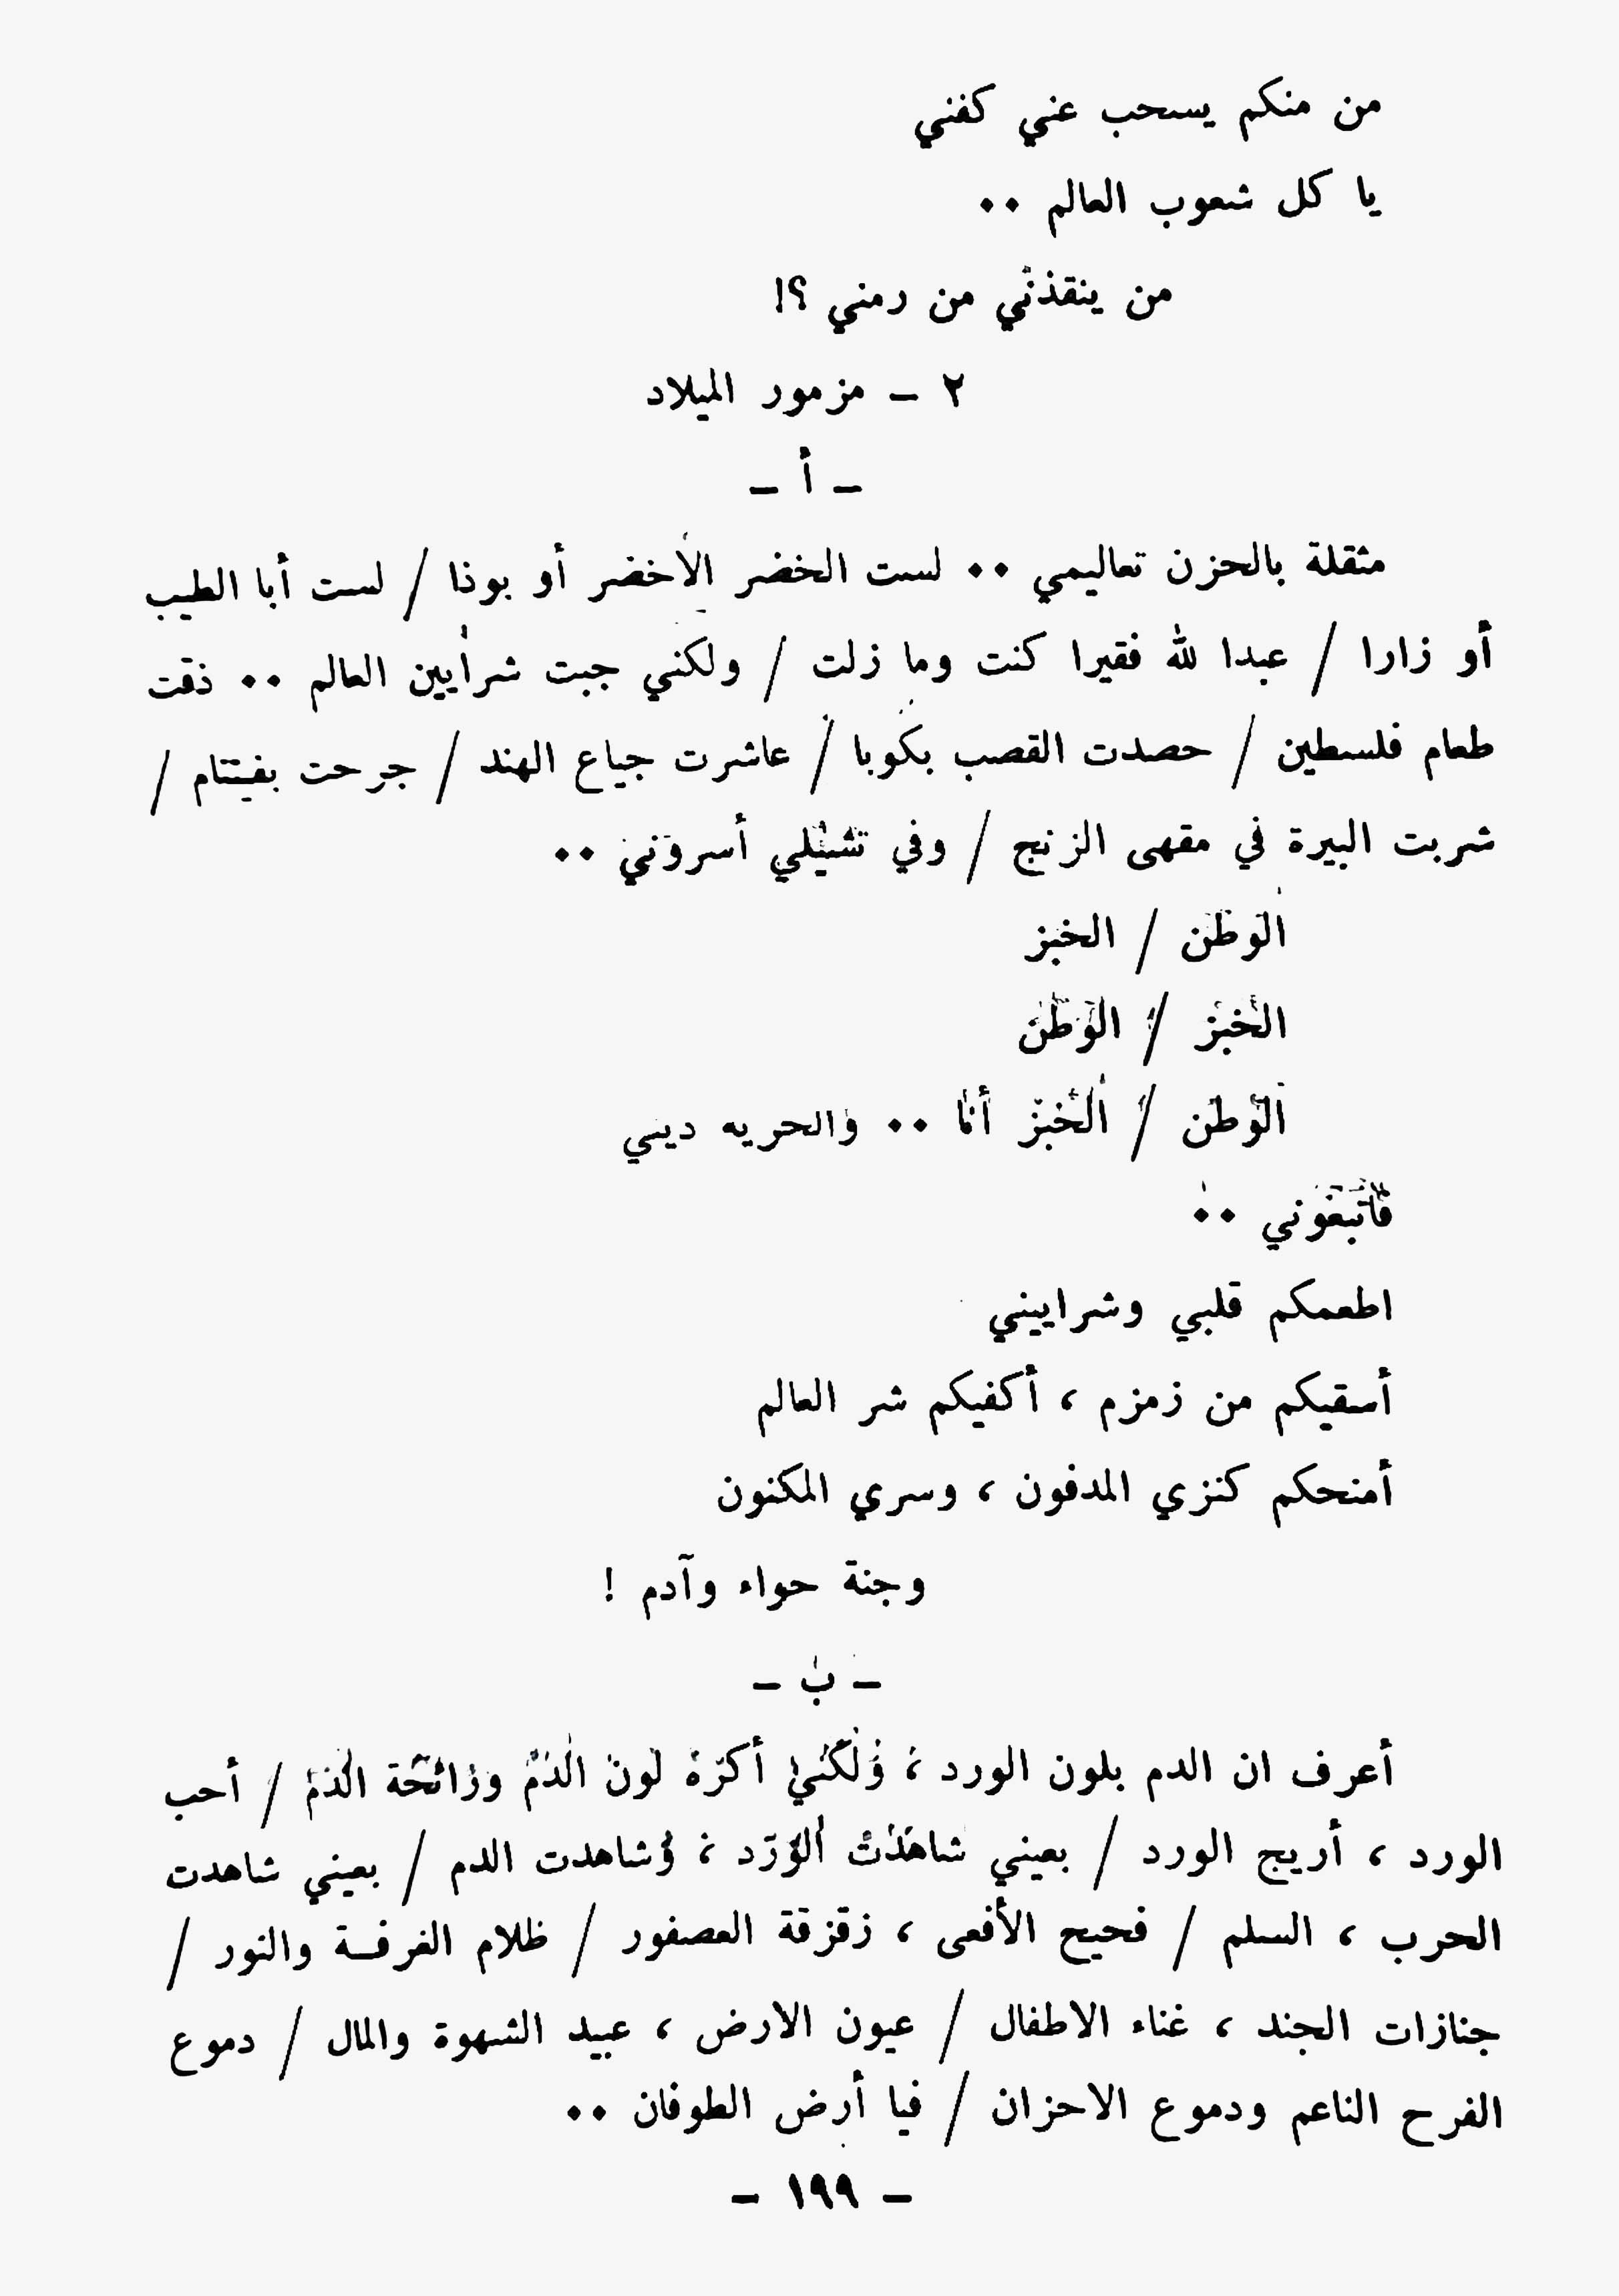 من منكم يسحب عني كفني
يا كل شعوب العالم ..
من ينقذني من رمني ؟!
٢ - مزمور الميلاد
- أ -
مثقلة بالحزن تعاليمي .. لست الخضر الأخضر أو بوذا / لست أبا الطيب
أو زارا / عبدا لله فقيرا كنت وما زلت / ولكني جبت شرايين العالم .. ذقت
طعام فلسطين / حصدت القصب بكوبا / عاشرت جياع الهند / جرحت بفيتنام /
شربت البيرة في مقهى الزنج / وفي تشيلي أسروني ..
الوطن / الخبز
الخبز / الوطن
الوطن / الخبز أنا .. والحريه ديني
فاتبعوني ..
اطعمكم قلبي وشراييني
أسقيكم من زمزم ، أكفيكم شر العالم
أمنحكم كنزي المدفون ، وسري المكنون
وجنة حواء وآدم !
- ب -
أعرف ان الدم بلون الورد ، ولكني أكره لون الدم ورائحة الدم / أحب
الورد ، أريج الورد / بعيني شاهدت الورد ، وشاهدت الدم / بعيني شاهدت
الحرب ، السلم / فحيح الأفعى ، زقزقة العصفور / ظلام الغرفة والنور /
جنازات الجند ، غناء الاطفال / عيون الارض ، عبيد الشهوة والمال / دموع
الفرح الناعم ودموع الاحزان / فيا أرض الطوفان ..
- ١٩٩ -